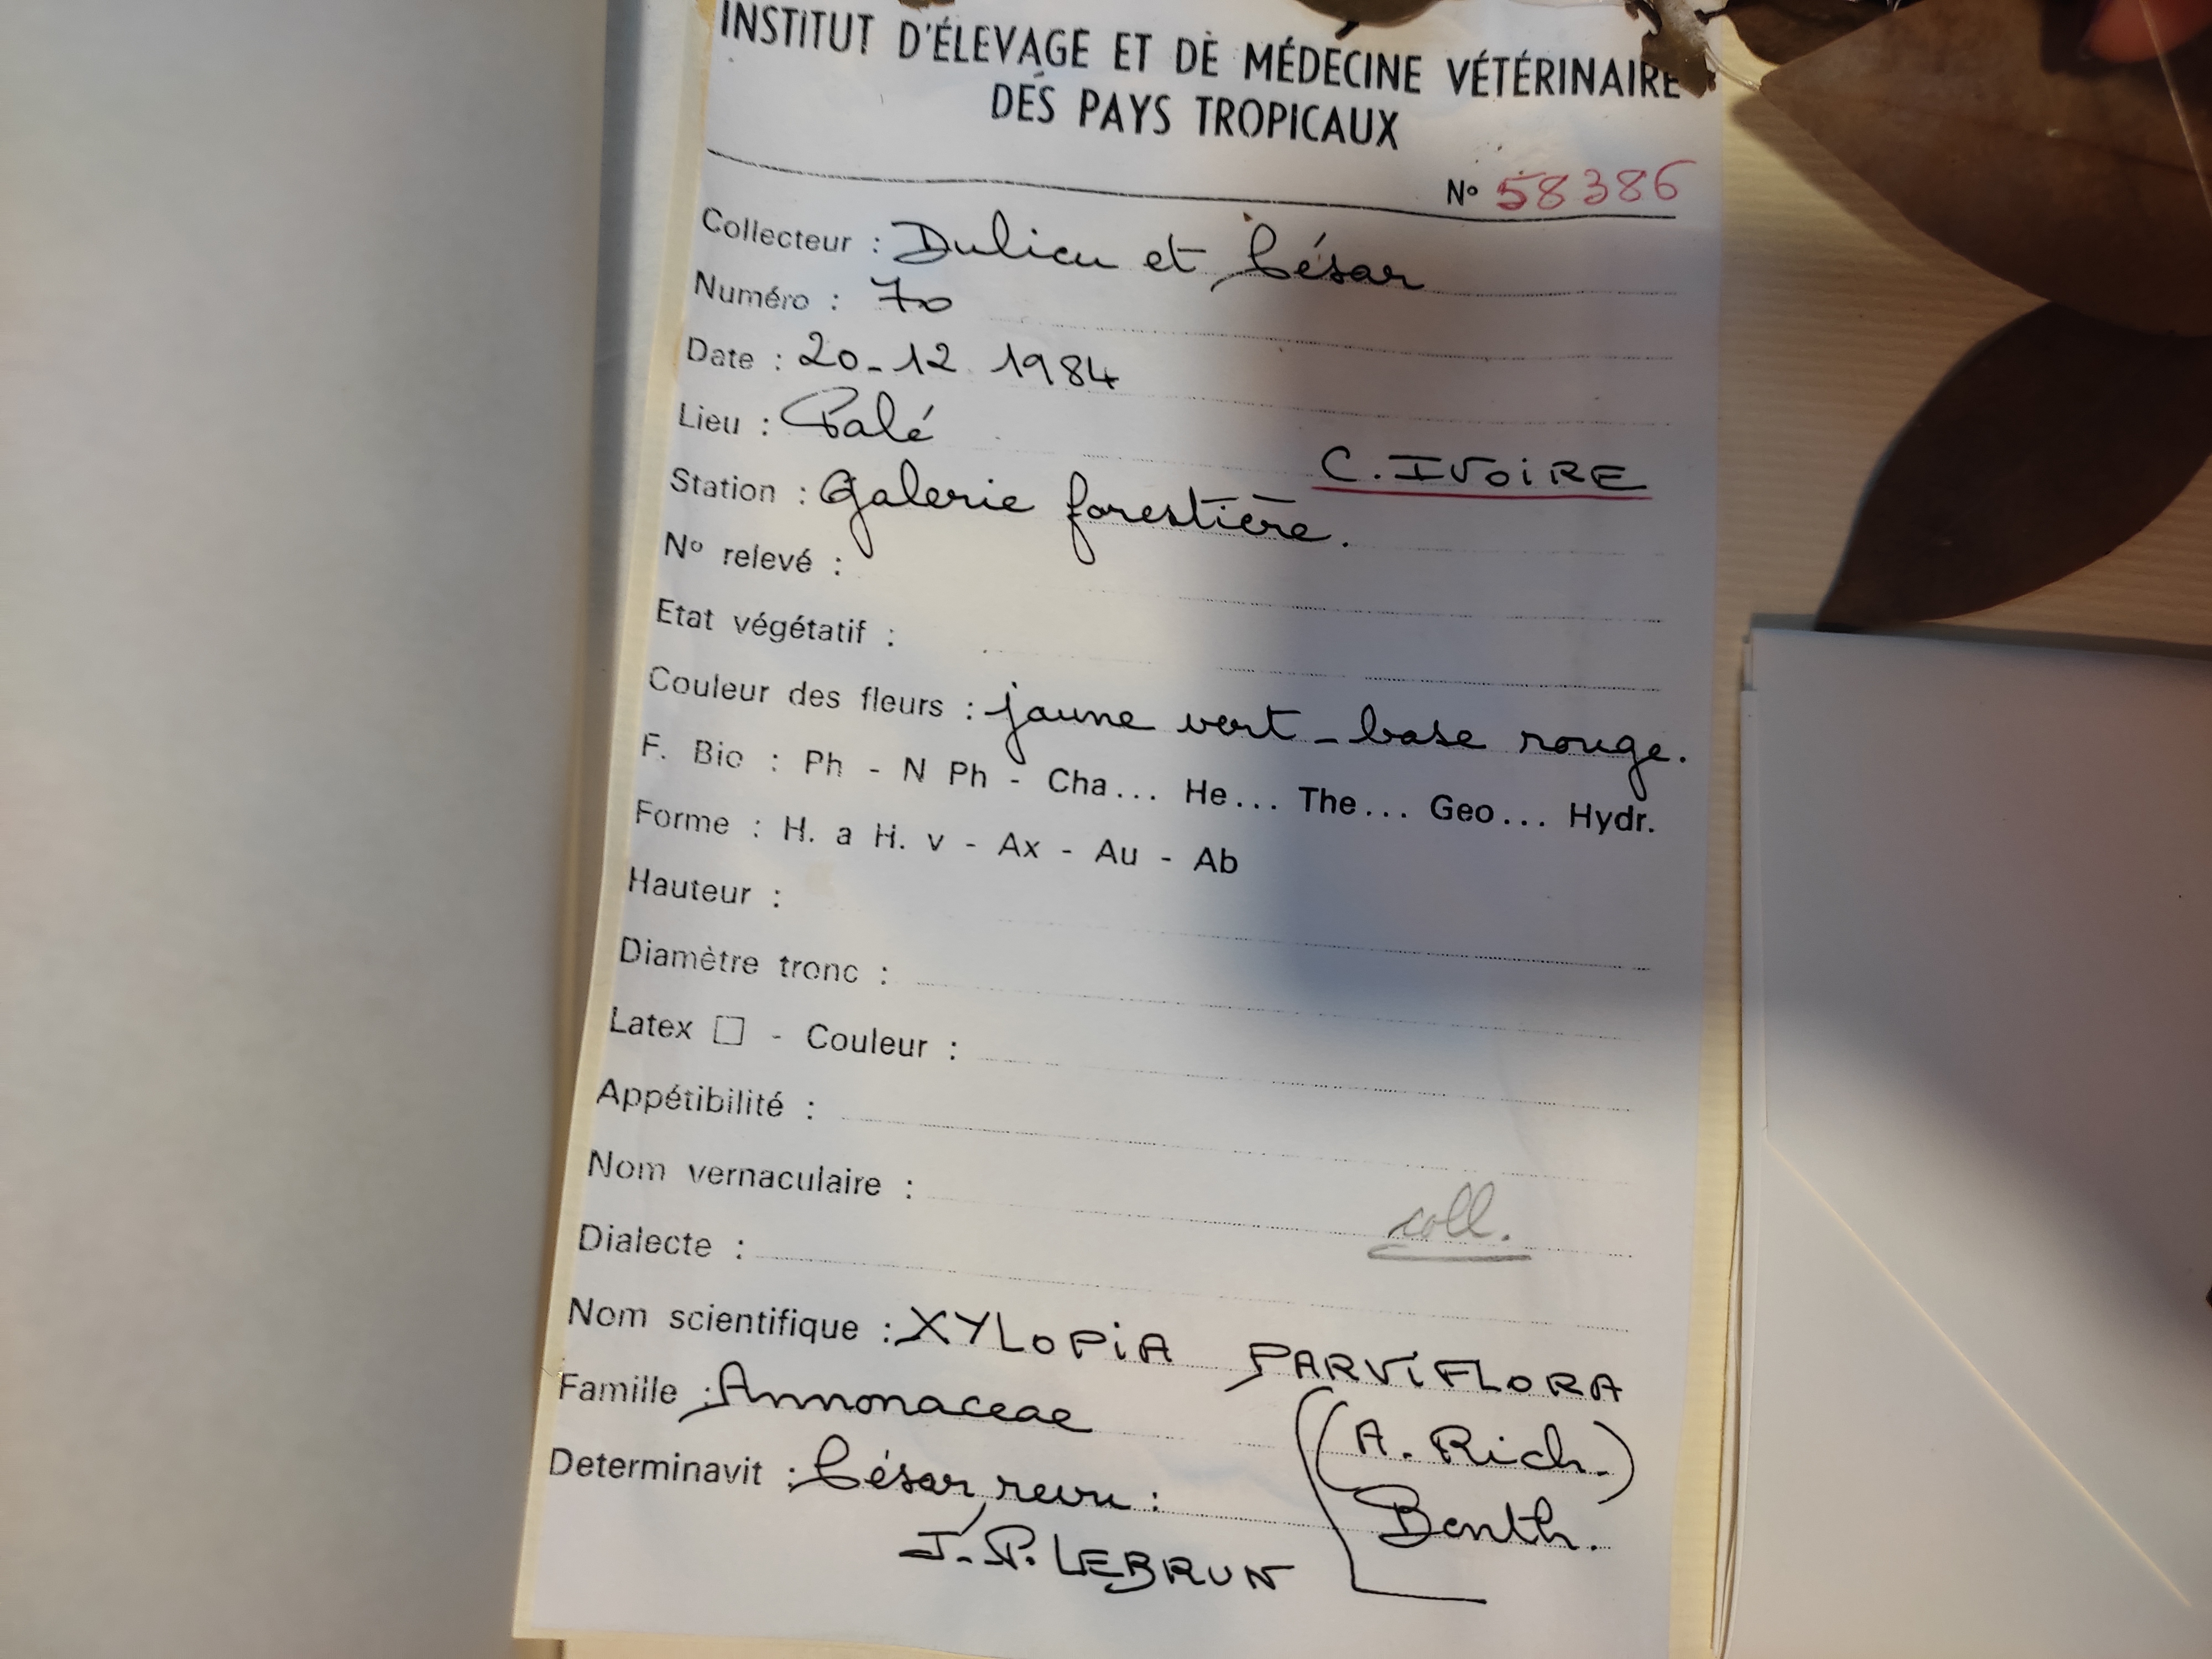 INSTITUT D'ÉLEVAGE ET DE MÉDECINE VÉTÉRINAIRE
DES PAYS TROPICAUX
N° 58386
Collecteur : Dulieu et César
Numéro : 70
Date : 20-12 1984
Lieu : Palé
C. IVOIRE
Station : Galerie forestière.
N° relevé :
Etat végétatif :
Couleur des fleurs : jaune vert - base rouge.
F. Bio : Ph - N Ph - Cha... He... The... Geo... Hydr.
Forme : H. a H. v - Ax - Au - Ab
Hauteur :
Diamètre tronc :
Latex □ - Couleur :
Appétibilité :
Nom vernaculaire :
coll.
Dialecte :
Nom scientifique : XYLOPIA PARVIFLORA
(A. Rich.)
Benth.
Famille : Annonaceae
Determinavit : César, revu :
J. P. LEBRUN